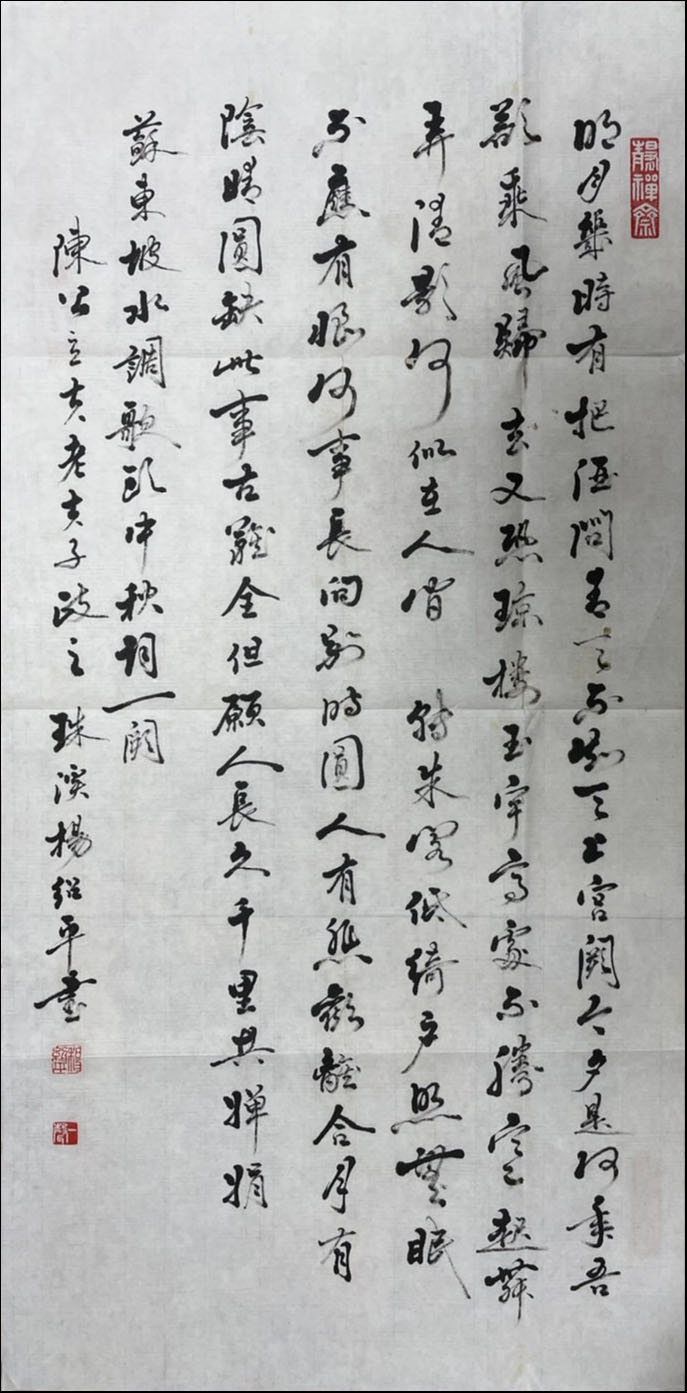 靜禪齋
明月幾時有把酒問青天不知天上宮闕今夕是何年吾
欲乘風歸去又恐瓊樓玉宇高處不勝寒起舞
弄清影何似在人間 轉朱閣低綺戶照無眠
不應有恨何事長向別時圓人有悲歡離合月有
陰晴圓缺此事古難全但願人長久千里共嬋娟
蘇東坡水調歌頭中秋詞一闕
陳公立夫老夫子政之 珠溪楊紹平書